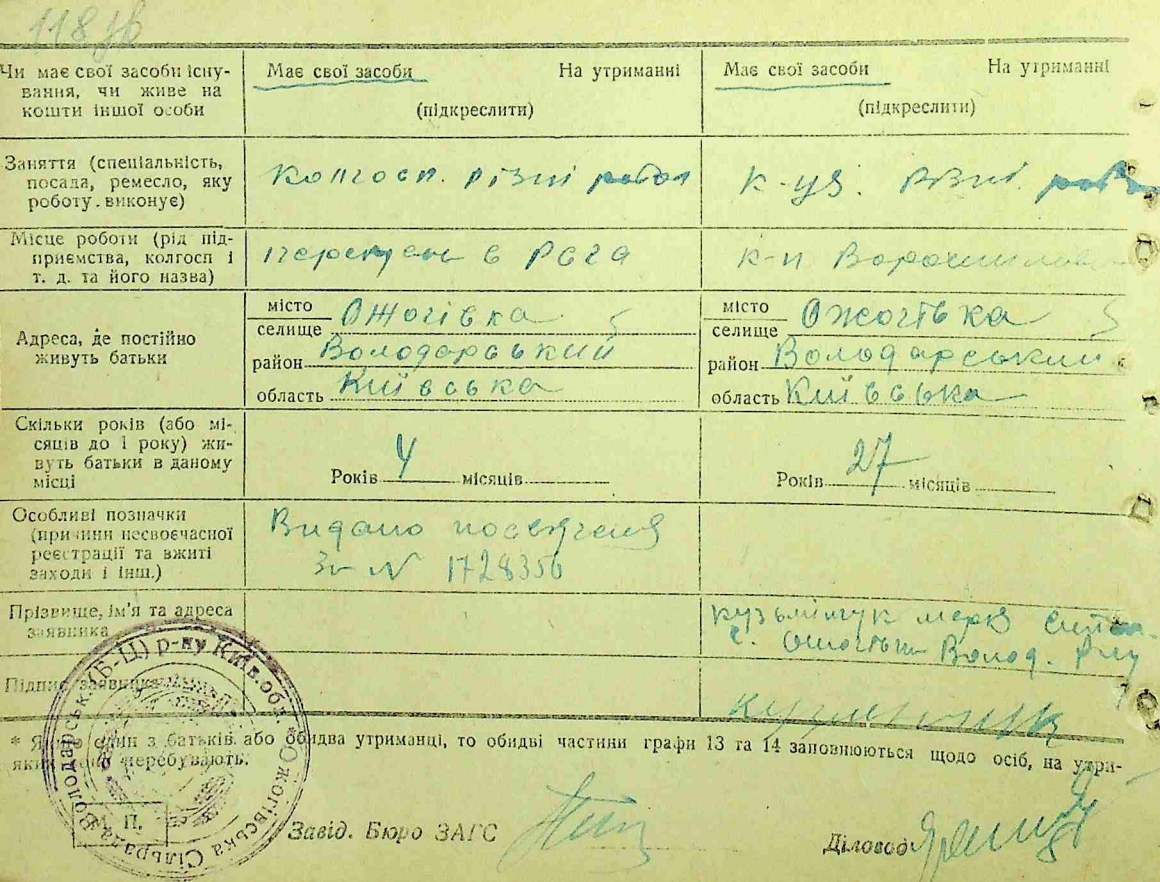 118
Чи має свої засоби існу-
вання, чи живе на
кошти іншої особи
Має свої засоби На утриманні
(підкреслити)
Має свої засоби На утриманні
(підкреслити)
Заняття (спеціальність,
посада, ремесло, яку
роботу виконує)
Колгосп. різні робот
к-ця. Різні.
Місце роботи (рід під-
приємства, колгосп і
т. д. та його назва)
в РСЧА
к-п Ворошилова
Адреса, де постійно
живуть батьки
місто
селище Ожогівка
район Володарський
область Київська
місто
селище Ожогівка
район Володарський
область Київська
Скільки років (або мі-
сяців до 1 року) жи-
вуть батьки в даному
місці
Років 4 місяців
Років 27 місяців
Особливі позначки
(причини несвоєчасної
реєстрації та вжиті
заходи і інш.)
Видано
за N 1728356
Прізвище, ім'я та адреса
заявника
Кузьмінчук
с. Волод. р-ну
Підпис заявника
* Якщо один з батьків або обидва утриманці, то обидві частини графи 13 та 14 заповнюються щодо осіб, на утри-
яких перебувають.
Володарськ. (Б-Ц) р-ну Київ. обл. Ожогівська Сільрада
М. П.
Завід. Бюро ЗАГС
Діловод